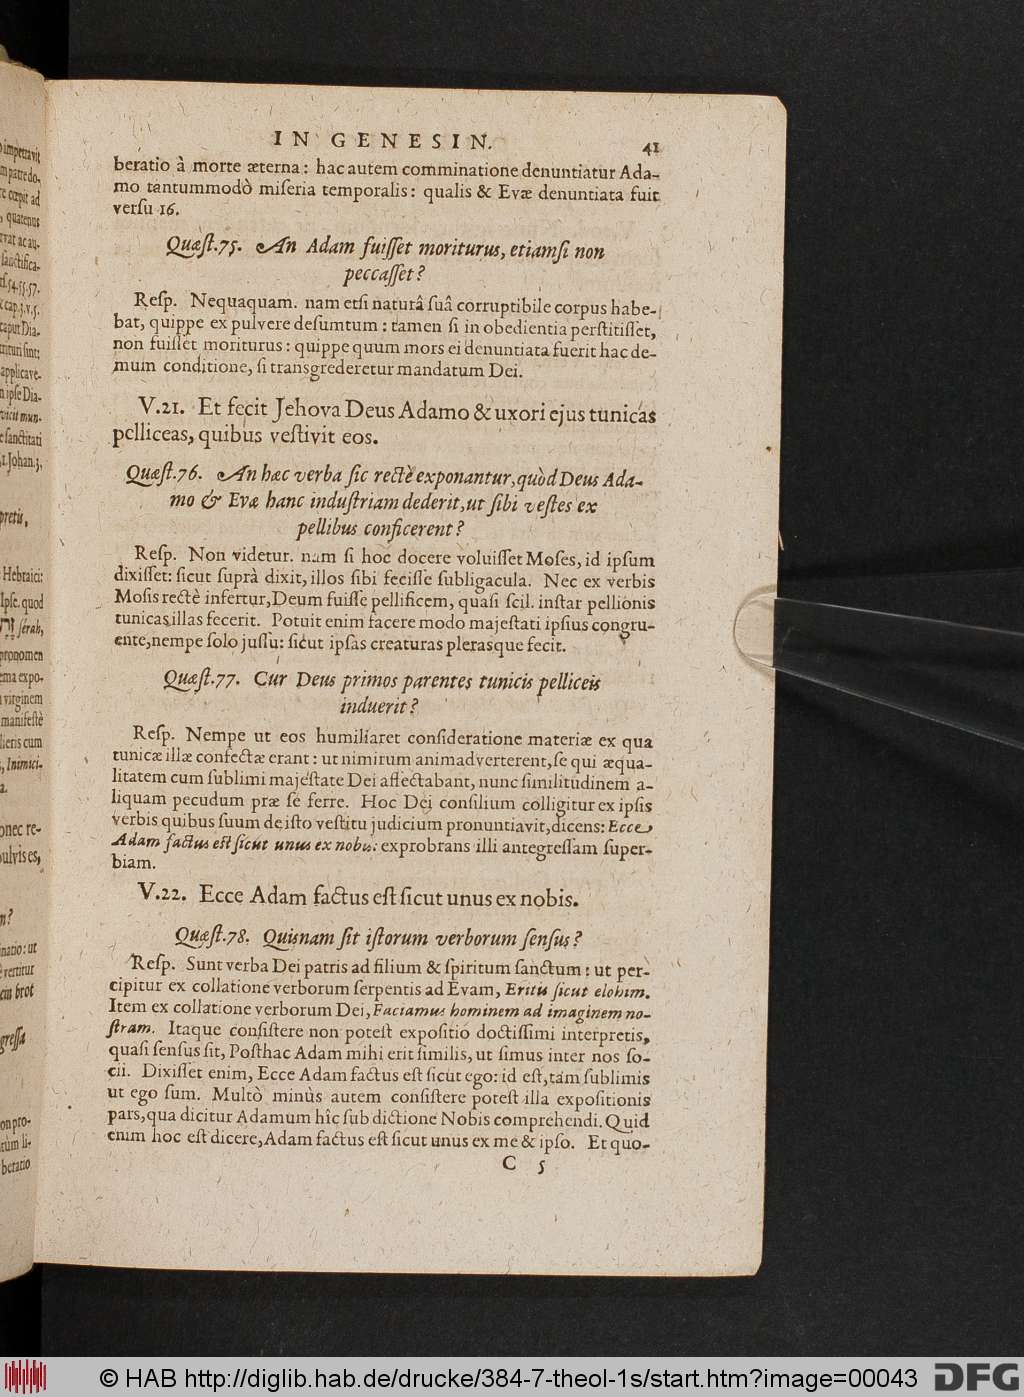 IN GENESIN. 41
beratio à morte æterna: hac autem comminatione denuntiatur Ada-
mo tantummodò miſeria temporalis: qualis & Evæ denuntiata fuit
verſu 16.
Quæſt.75. An Adam fuiſſet moriturus, etiamſi non
peccaſſet?
Reſp. Nequaquam. nam etſi naturâ ſuâ corruptibile corpus habe-
bat, quippe ex pulvere deſumtum: tamen ſi in obedientia perſtitiſſet,
non fuiſſet moriturus: quippe quum mors ei denuntiata fuerit hac de-
mum conditione, ſi transgrederetur mandatum Dei.
V.21. Et fecit Jehova Deus Adamo & uxori ejus tunicas
pelliceas, quibus veſtivit eos.
Quæſt.76. An hæc verba ſic rectè exponantur, quòd Deus Ada-
mo & Evæ hanc induſtriam dederit, ut ſibi veſtes ex
pellibus conficerent?
Reſp. Non videtur. nam ſi hoc docere voluiſſet Moſes, id ipſum
dixiſſet: ſicut ſuprà dixit, illos ſibi feciſſe ſubligacula. Nec ex verbis
Moſis rectè infertur, Deum fuiſſe pellificem, quaſi ſcil. inſtar pellionis
tunicas illas fecerit. Potuit enim facere modo majeſtati ipſius congru-
ente, nempe ſolo juſſu: ſicut ipſas creaturas plerasque fecit.
Quæſt.77. Cur Deus primos parentes tunicis pelliceis
induerit?
Reſp. Nempe ut eos humiliaret conſideratione materiæ ex qua
tunicæ illæ confectæ erant: ut nimirum animadverterent, ſe qui æqua-
litatem cum ſublimi majeſtate Dei affectabant, nunc ſimilitudinem a-
liquam pecudum præ ſe ferre. Hoc Dei conſilium colligitur ex ipſis
verbis quibus ſuum de iſto veſtitu judicium pronuntiavit, dicens: Ecce
Adam factus eſt ſicut unus ex nobis: exprobrans illi antegreſſam ſuper-
biam.
V.22. Ecce Adam factus eſt ſicut unus ex nobis.
Quæſt.78. Quisnam ſit iſtorum verborum ſenſus?
Reſp. Sunt verba Dei patris ad filium & ſpiritum ſanctum: ut per-
cipitur ex collatione verborum ſerpentis ad Evam, Eritis ſicut elohim.
Item ex collatione verborum Dei, Faciamus hominem ad imaginem no-
ſtram. Itaque conſiſtere non poteſt expoſitio doctiſſimi interpretis,
quaſi ſenſus ſit, Poſthac Adam mihi erit ſimilis, ut ſimus inter nos ſo-
cii. Dixiſſet enim, Ecce Adam factus eſt ſicut ego: id eſt, tàm ſublimis
ut ego ſum. Multò minùs autem conſiſtere poteſt illa expoſitionis
pars, qua dicitur Adamum hîc ſub dictione Nobis comprehendi. Quid
enim hoc eſt dicere, Adam factus eſt ſicut unus ex me & ipſo. Et quo-
C 5
© HAB http://diglib.hab.de/drucke/384-7-theol-1s/start.htm?image=00043
DFG